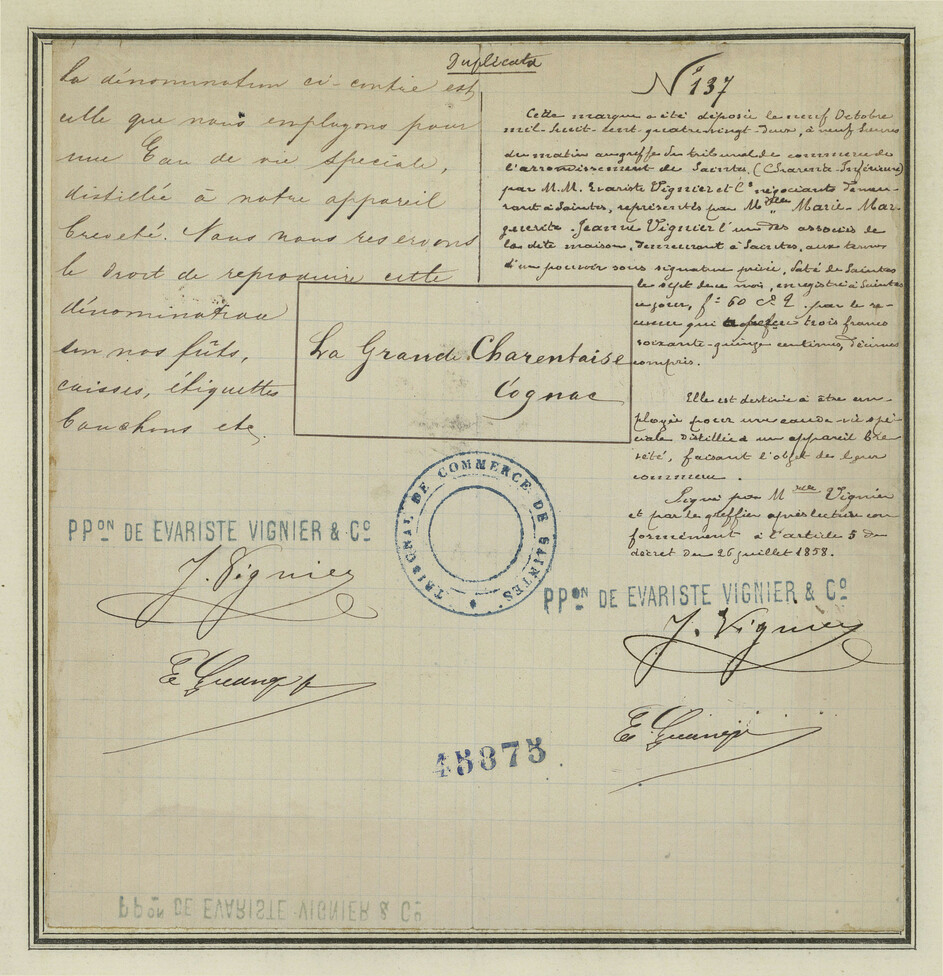 Duplicata
La dénomination ci-contre est
celle que nous employons pour
une Eau de vie spéciale,
distillée à notre appareil
breveté. Nous nous reservons
le droit de reproduire cette
dénomination
sur nos fûts,
caisses, étiquettes
bouchons etc.
N° 137
Cette marque a été déposée le neuf Octobre
mil-huit-cent-quatre-vingt-deux, à neuf heures
du matin au greffe du tribunal de commerce de
l'arrondissement de Saintes, (Charente-Inférieure)
par M.M. Evariste Vignier et Cie négociants demeu-
rant à Saintes, représentés par Mdlle Marie-Mar-
guerite Jeanne Vignier l'un des associés de
la dite maison, demeurant à Saintes, aux termes
d'un pouvoir sous signature privée, daté de Saintes
le sept de ce mois, enregistré à Saintes
ce jour, f° 60 c. 2. par le re-
ceveur qui a perçu trois francs
soixante-quinze centimes, décimes
compris.
La Grande Charentaise
Cognac
Elle est destinée à être em-
ployée pour une eau-de-vie spé-
ciale distillée à un appareil bre-
veté, faisant l'objet de leur
commerce.
Signé par Melle Vignier
et par le greffier après lecture con-
formément à l'article 5 du
décret du 26 juillet 1858.
TRIBUNAL DE COMMERCE DE SAINTES
PPON DE EVARISTE VIGNIER & Co
J. Vignier
PPON DE EVARISTE VIGNIER & Co
J. Vignier
45875
PPON DE EVARISTE VIGNIER & Co